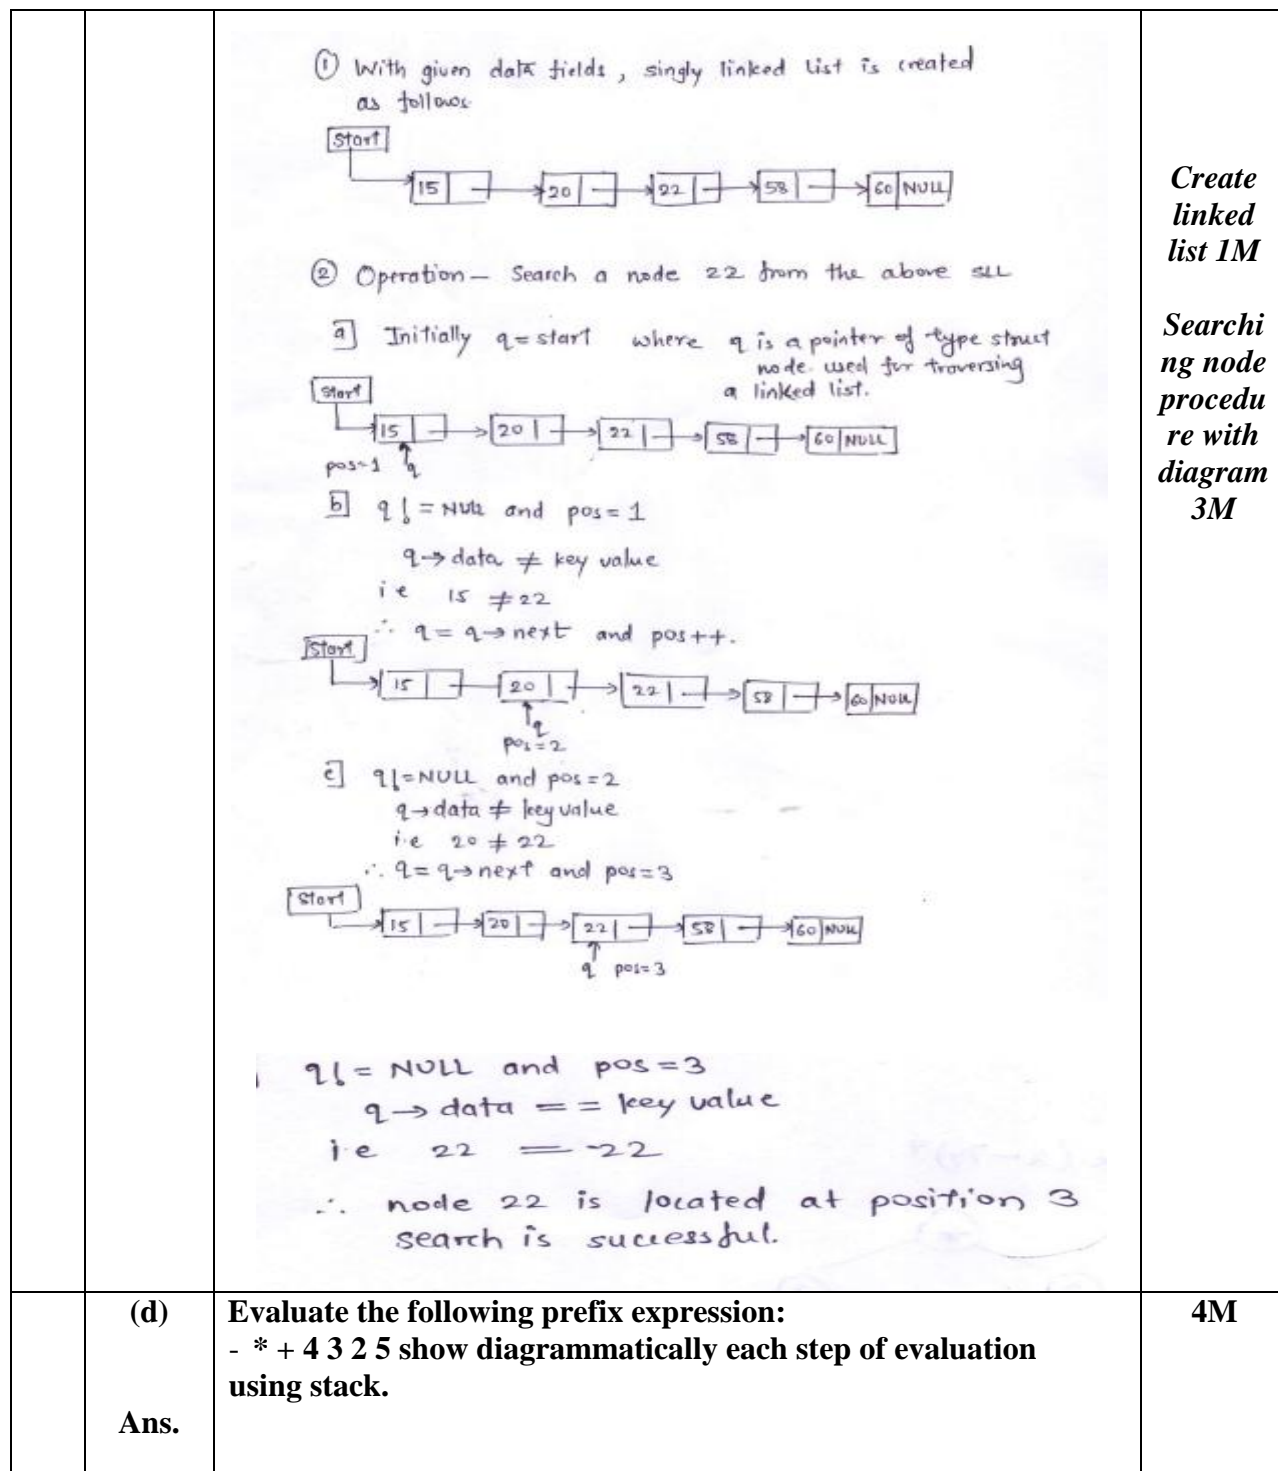 ① With given data fields, singly linked list is created
as follows
Start
15 20 22 58 60 NULL
② Operation - Search a node 22 from the above SLL
a] Initially q = start where q is a pointer of type struct
node used for traversing
a linked list.
Start
15 20 22 58 60 NULL
pos=1 q
b] q != NULL and pos = 1
q → data ≠ key value
i e 15 ≠ 22
∴ q = q → next and pos++.
Start
15 20 22 58 60 NULL
q
pos=2
c] q != NULL and pos = 2
q → data ≠ key value
i.e 20 ≠ 22
∴ q = q → next and pos=3
Start
15 20 22 58 60 NULL
q pos=3
q != NULL and pos = 3
q → data == key value
i e 22 == 22
∴ node 22 is located at position 3
search is successful.
Create
linked
list 1M
Searchi
ng node
procedu
re with
diagram
3M
(d) Evaluate the following prefix expression: 4M
- * + 4 3 2 5 show diagrammatically each step of evaluation
using stack.
Ans.